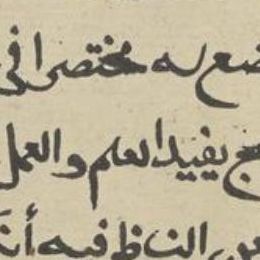 ضع له مختصرا في
يفيد العلم والعمل
الناظر فيه أن